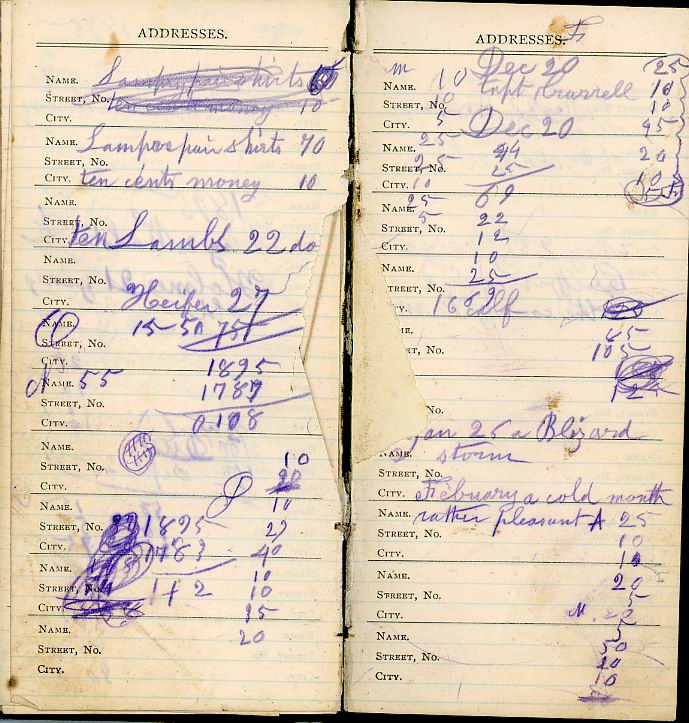 ADDRESSES.
NAME. Lampos pair shirts
STREET, No. ten cents money 10
CITY.
NAME. Lampos pair shirts 70
STREET, No.
CITY. ten cents money 10
NAME.
STREET, No.
CITY. ten Lambs 22 do
NAME.
STREET, No.
CITY. Heifer 27
NAME. 15-50 75
STREET, No.
CITY. 1895
NAME. 55 1787
STREET, No.
CITY. 0108
NAME.
STREET, No. 10
CITY. 20
NAME. 10
STREET, No. 1895 22
CITY. 1783 40
NAME. 10
STREET, No. 112 10
CITY. 15
NAME. 20
STREET, No.
CITY.
ADDRESSES.
Dec 20 25
NAME. 10 Capt 10
STREET, No. 10 10
CITY. 5 Dec 20 45
NAME. 25 44 20
STREET, No. 25 25 10
CITY. 10
NAME. 25 69
STREET, No. 5 22
CITY. 12
NAME. 10
STREET, No. 25
CITY.
NAME. 65
STREET, No. 105
125
No.
Jan 26 a Blizard
NAME. storm
STREET, No.
CITY. February a cold month
NAME. rather pleasant A 25
STREET, No. 10
CITY. 10
NAME. 20
STREET, No. 5
CITY. M. 20
NAME. 5
STREET, No. 50
CITY. 10